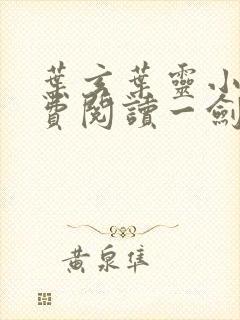 葉玄葉靈小
費閱讀一劍
黃泉隼